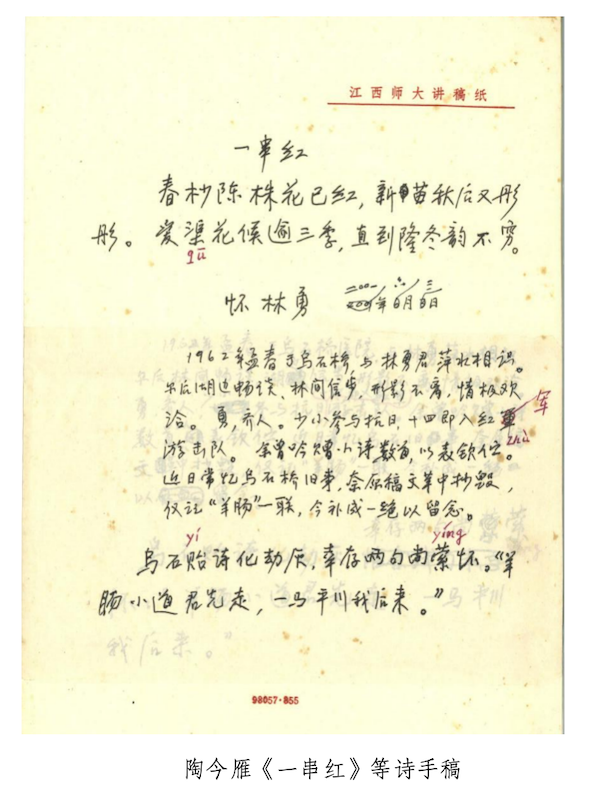 江西师大讲稿纸
一串红
春杪陈株花已红，新苗秋后又彤
彤。爱渠花候逾三季，直到隆冬韵不穷。
qú
怀林勇 二〇〇一年六月三日
1962年孟春于乌石桥与林勇君萍水相识。
午后湖边畅谈、林间信步，形影不离，情极欢
洽。勇，齐人。少小参与抗日，十四即入红军
游击队。余曾吟赠小诗数首，以表钦伫。
zhù
近日常忆乌石桥旧事，奈原稿文革中抄毁，
仅记“羊肠”一联，今补成一绝以留念。
yí yíng
乌石贻诗化劫灰，幸存两句尚萦怀。“羊
肠小道君先走，一马平川我后来。”
98057·855
陶今雁《一串红》等诗手稿